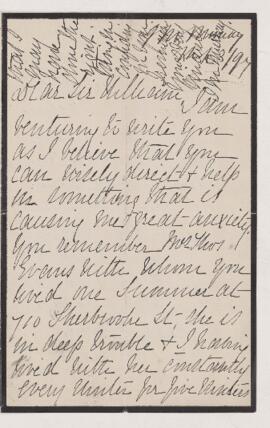 Dear Sir William, I am
venturing to write you
as I believe that you
can wisely direct & help
in something that is
causing me great anxiety
you remember Mrs Thos.
Evans with whom you
lived one Summer at
710 Sherbrooke St, she is
in deep trouble & I having
lived with her constantly
every Winter for five Winters